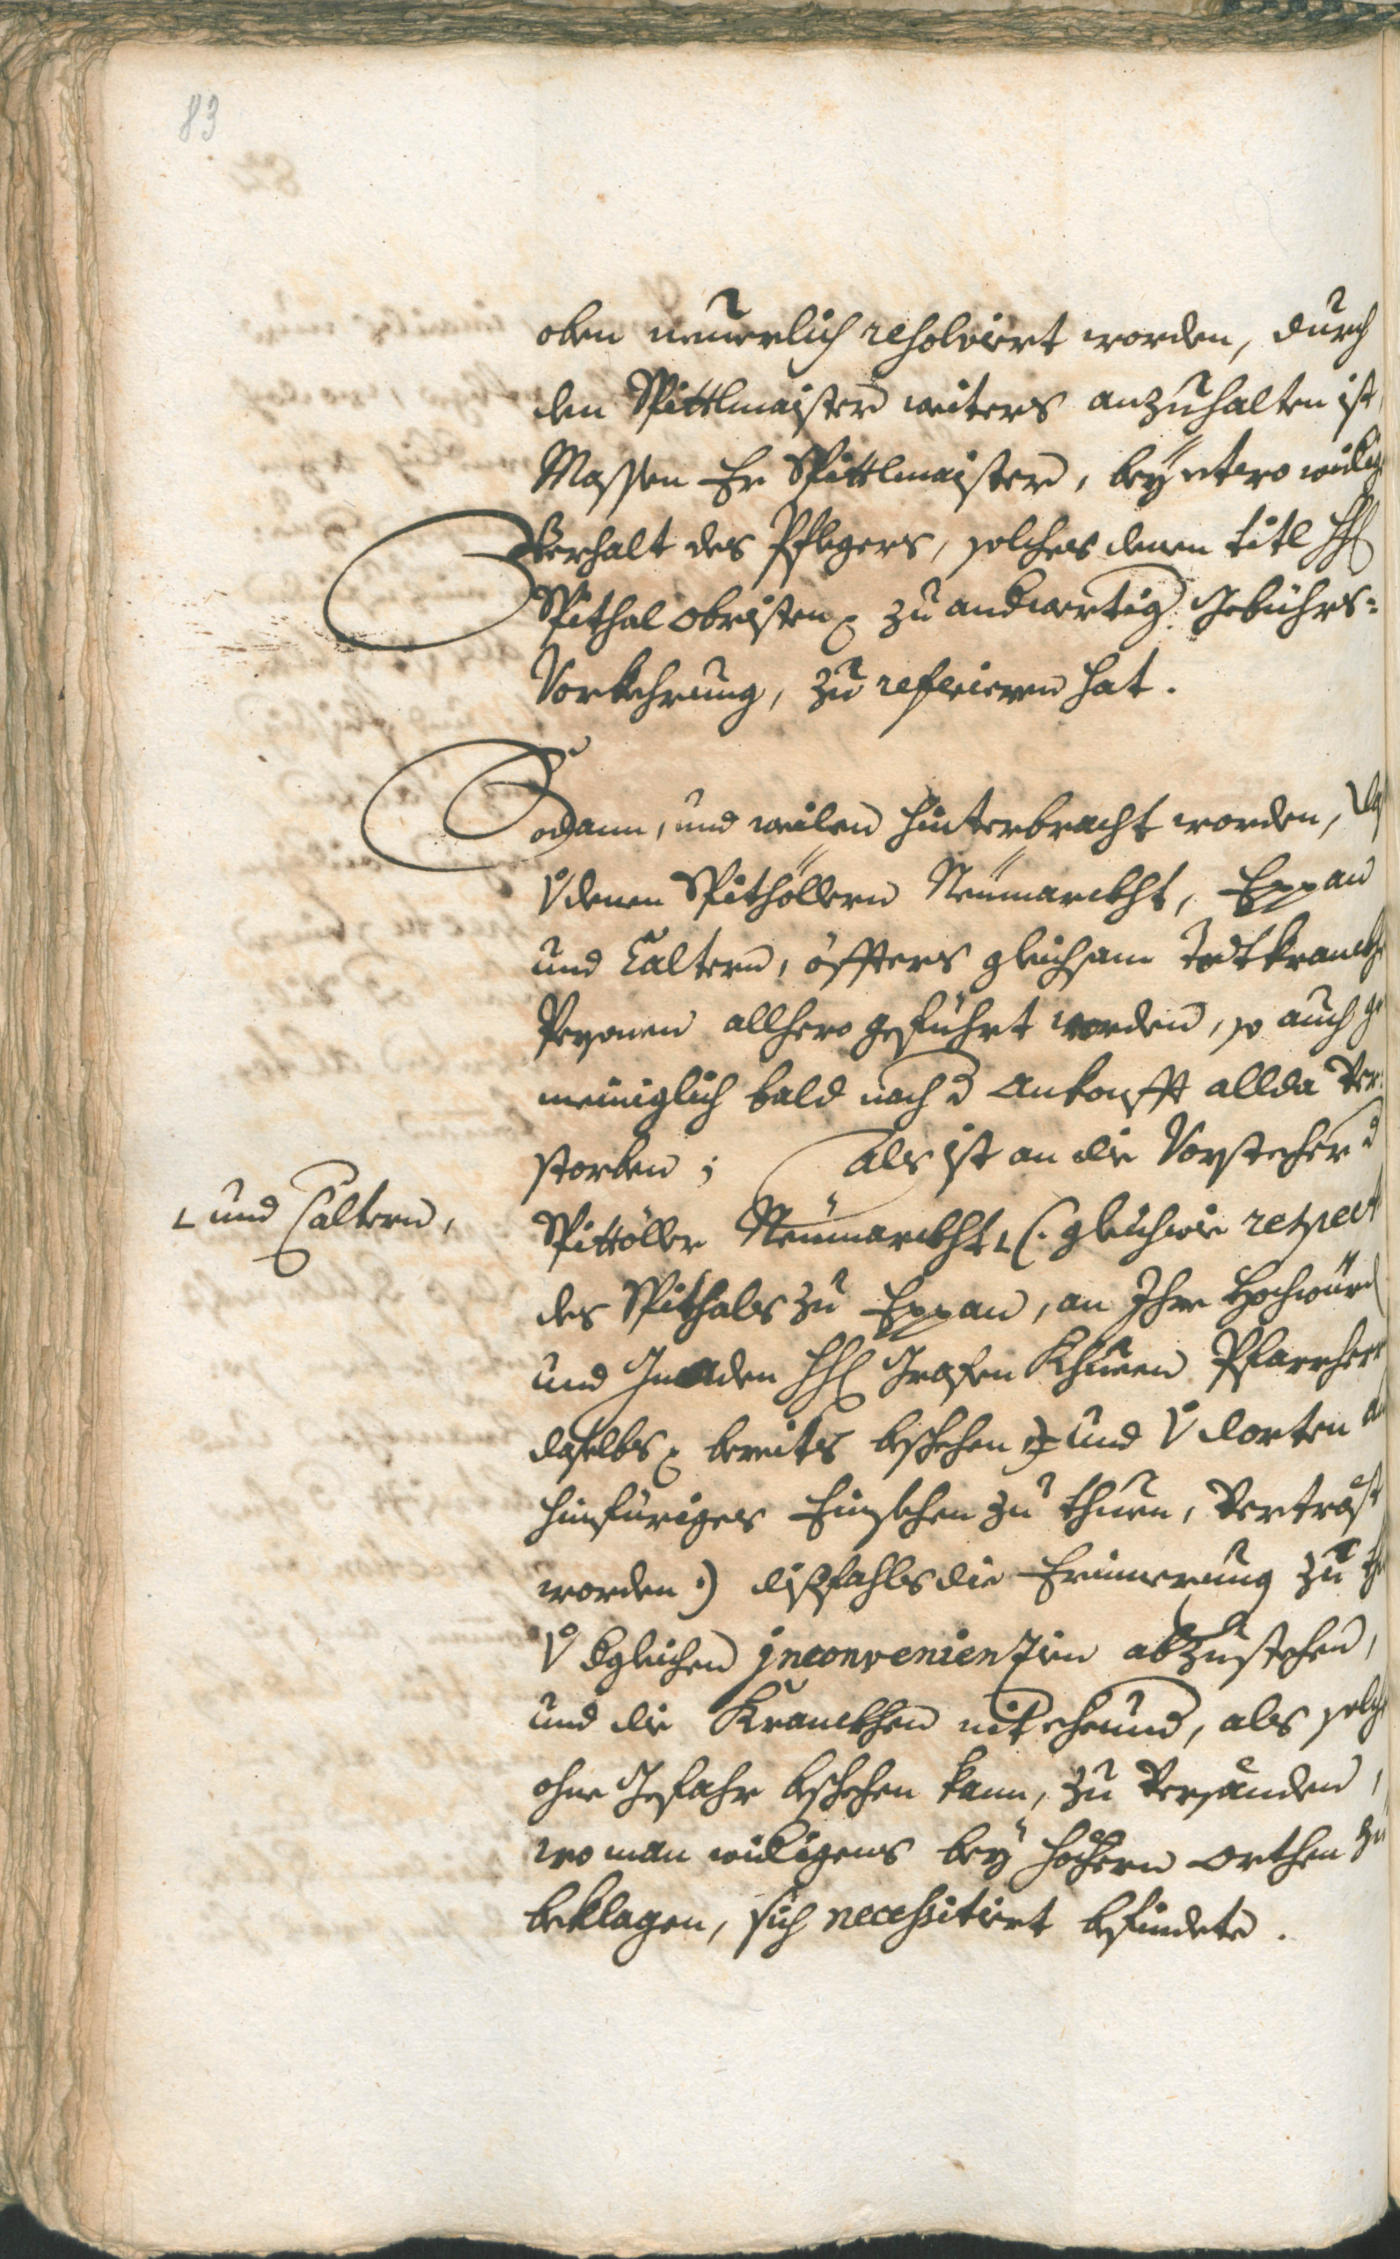 83
oben neuerlich resolviert worden, durch
den Spittlmaister weiters anzuhalten ist,
Massen Er Spittlmaister, bey
Verhalt des Pflegers, solches denen titl HH
Spithal Obristen zu andwertig. Gebührs=
Vorkehrung, zu referieren hat.
Sodann, und weilen hinterbracht worden, das
denen Spithöllern Neumarckht, Eppan
und Caltern, öffters gleichsam Todtkranckhe
Persohnen allhero geführt worden, so auch ge
meiniglich bald nach d Ankonfft allda Ver=
storben; Als ist an die Vorstecher d
Spittöller Neumarckht ˪ (: gleichwie respect
˪ und Caltern,
des Spithals zu Eppan, an Ihre Hochwürd
und Gnaden HH Grafen Khuen Pfarrherr
daselbs bereits beschehen und dorten
hinfüriges Einsechen zu thuen, Vertröst
worden :) dissfahls die Erinnerung zu
dgleichen inconvenienzien abzustehen,
und die Kranckhen nit eheund, als solches
ohne Gefahr beschehen kann, zu Versänden,
wo man widrigens bey höchern Orthen zu
beklagen, sich necessitiert befindete.